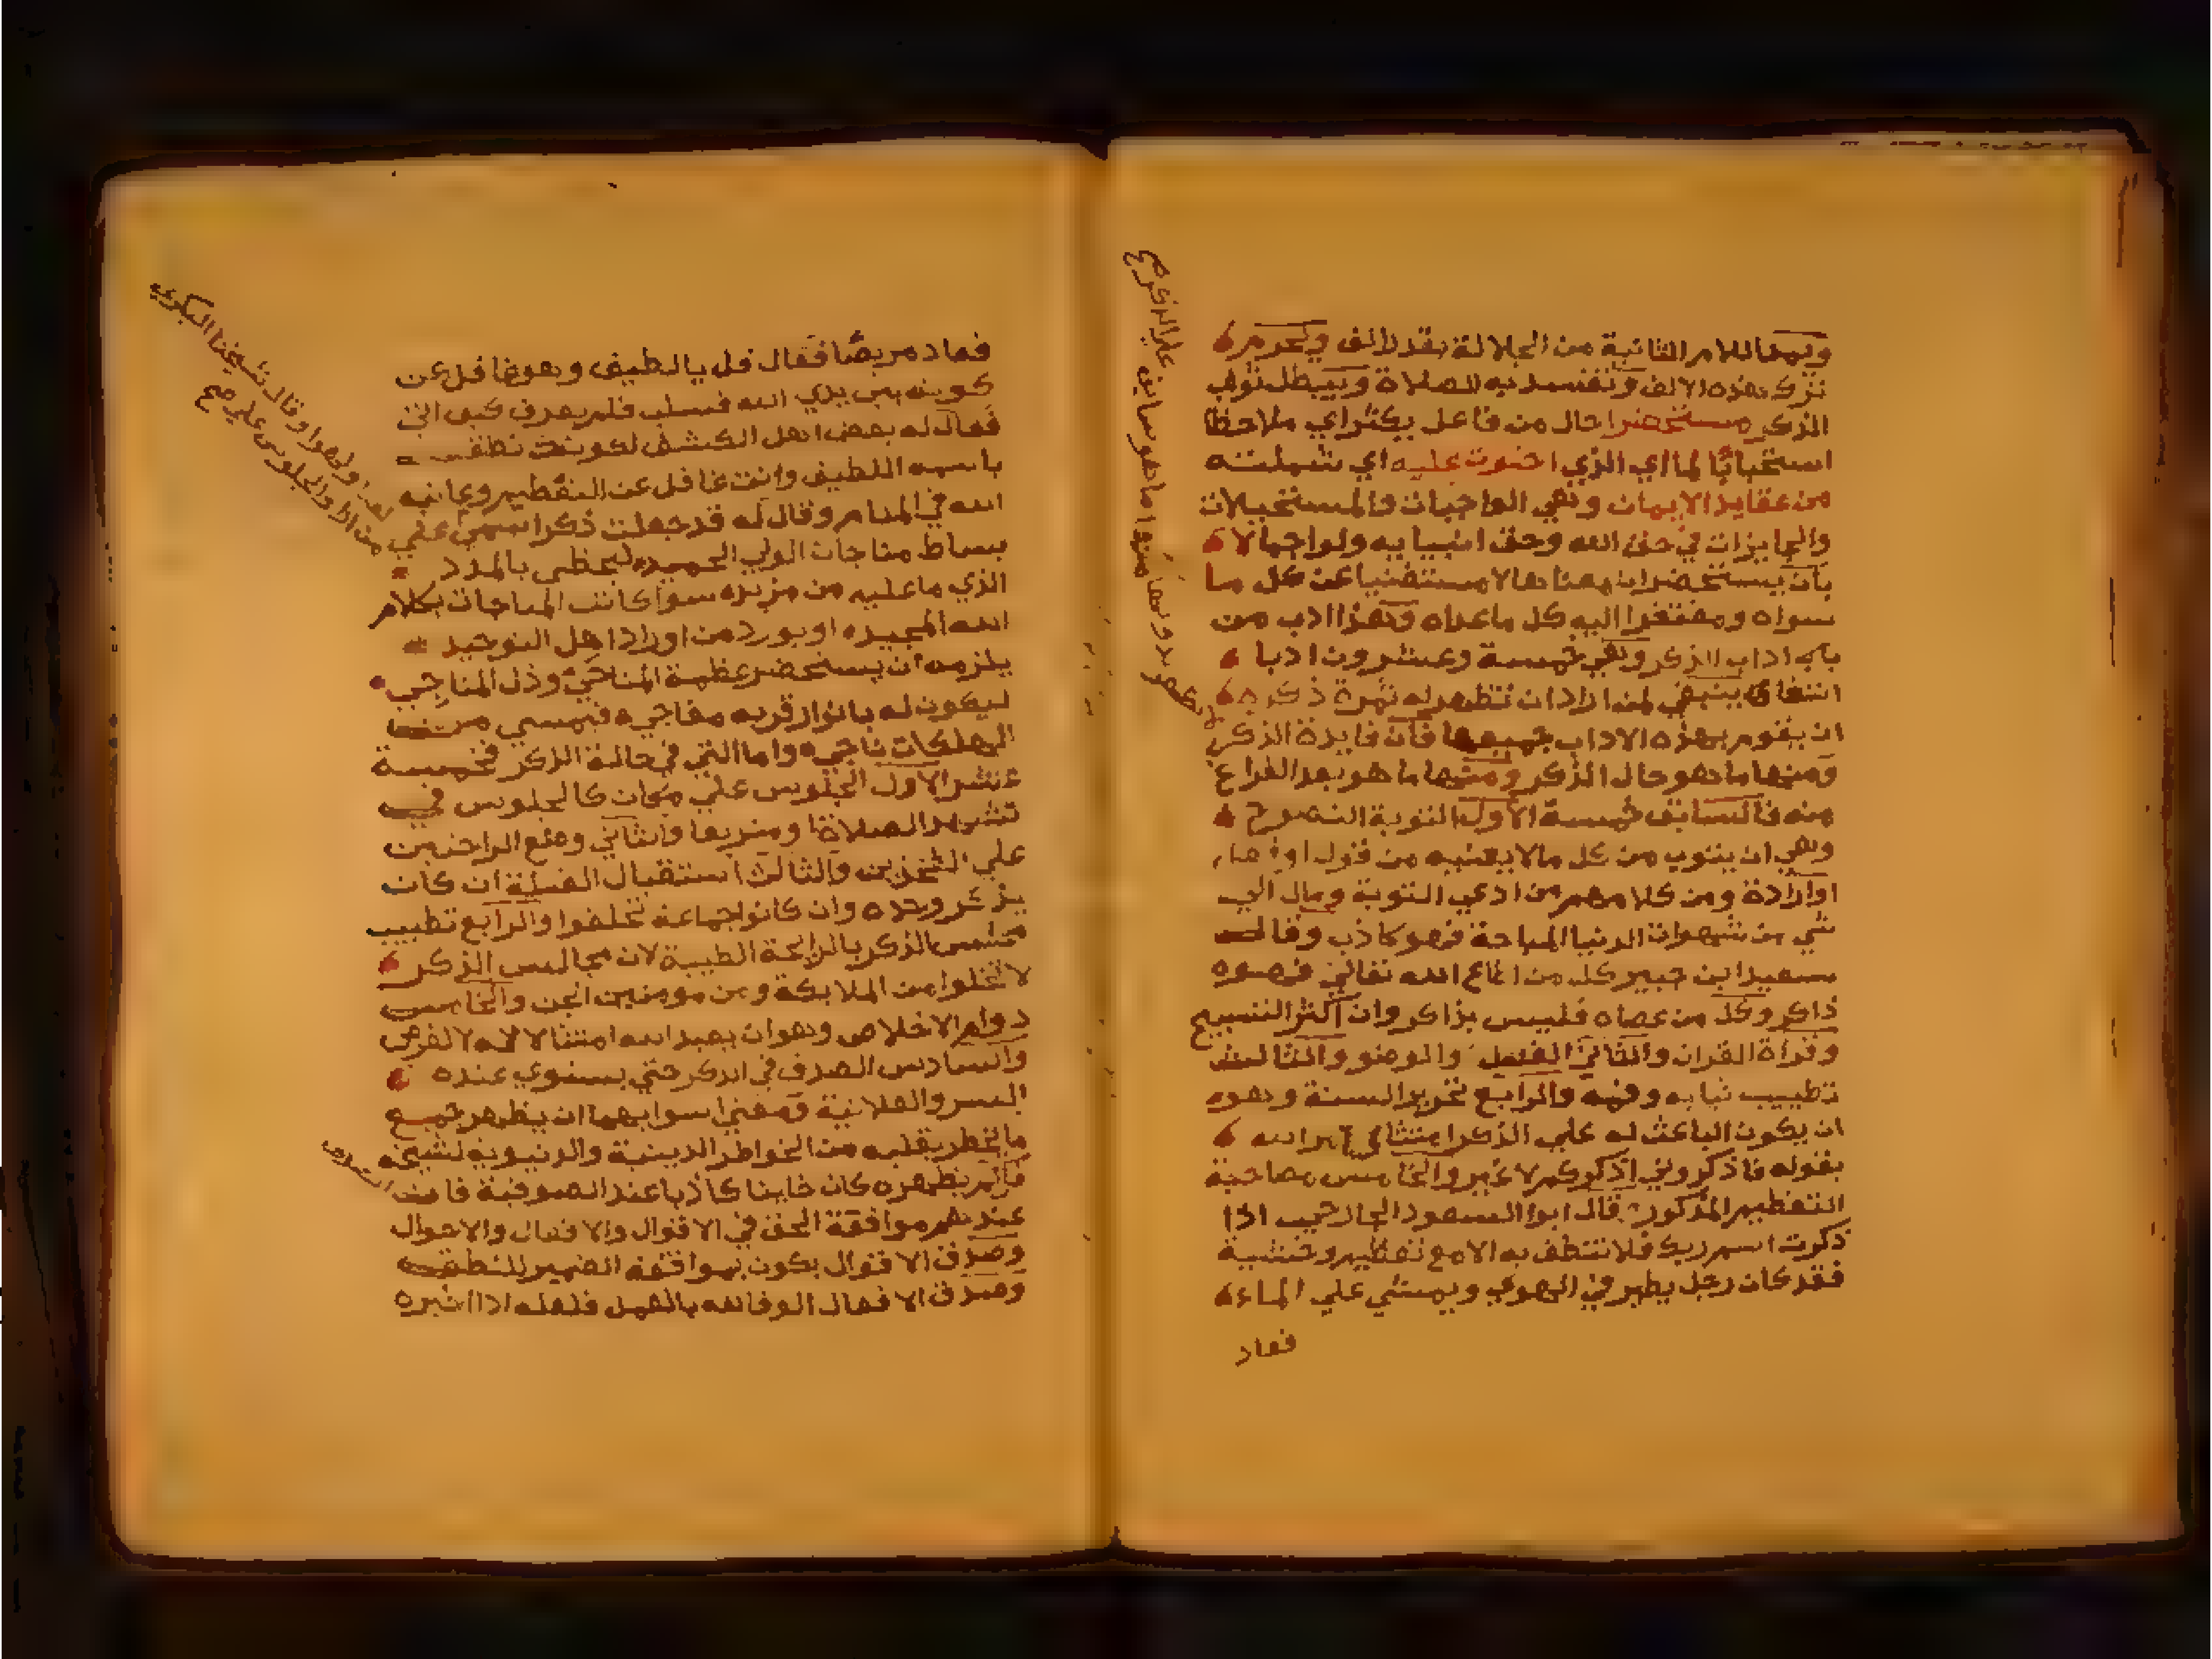 وبمد اللام الثانية من الجلالة بقدر الف ويحرم
ترك هذه الالف وتفسد به الصلاة ويبطل ثواب
الذكر مستحضرا حال من فاعل يكثر اي ملاحظا
استحبابا لما اي الذي احتوت عليه اي شملته
من عقايد الايمان وهي الواجبات والمستحيلات
والجايزات في حق الله وحق انبيايه ولو اجمالا
بان يستحضر ان معناها لا مستغنيا عن كل ما
سواه ومفتقرا اليه كل ما عداه وهذا ادب من
اداب الذكر وهي خمسة وعشرون ادبا
ينبغي لمن اراد ان تظهر له ثمرة ذكره
ان يقوم بهذه الاداب جميعها فان فايدة الذكر
ومنها ما هو حال الذكر ومنها ما هو بعد الفراغ
منه فالسابق خمسة الاول التوبة النصوح
وهي ان يتوب من كل ما لا يعنيه من قول او فعل
او ارادة ومن كلامهم من ادعي التوبة ومال الي
شي من شهوات الدنيا المباحة فهو كاذب وقال
سعيد ابن جبير كل من اطاع الله تعالي فهو
ذاكر وكل من عصاه فليس بذاكر وان اكثر التسبيح
وقراة القران والثاني الغسل والوضو والثالث
تطييب ثيابه وفمه والرابع تحرير النية وهو
ان يكون الباعث له علي الذكر امتثال امر الله
بقوله فاذكروني اذكركم لا غير والخامس مصاحبة
التعظيم المذكور قال ابوا السعود الجارحي اذا
ذكرت اسم ربك فلا تنطق به الا مع تعظيم وخشية
فقد كان رجل يطير في الهوي ويمشي علي الماء
فعاد
علي الذكر صح
منها ما هو سابق
فعاد مريضا فقال قل يا لطيف وهو غافل عن
كونه بين يدي الله فسلب فلم يعرف كيف
فقال له بعض اهل الكشف لكونك نطقت
باسمه اللطيف وانت غافل عن التعظيم وعاتبه
الله في المنام وقال له قد جعلت ذكر اسمي علي
بساط مناجات الولي الحميد ليحظي بالمدد
الذي ما عليه من مزيد سوا كانت المناجات بكلام
الله المجيد او بورد من اوراد اهل التوحيد
يلزمه ان يستحضر عظمة المناجي وذل المناجي
ليكون له بانوار قربه مفاجي فيمسي من
المهلكات ناجي واما التي في حالة الذكر فخمسة
عشر الاول الجلوس علي مكان كالجلوس في
تشهد الصلاة ومتربعا والثاني وضع الراحتين
علي الفخذين والثالث استقبال القبلة ان كان
يذكر وحده وان كانوا جماعة تحلقوا والرابع تطييب
مجلس الذكر بالرايحة الطيبة لان مجالس الذكر
لا تخلوا من الملايكة ومن مومنين الجن والخامس
دوام الاخلاص وهو ان يعبد الله امتثالا له لا لغرض
والسادس الصدق في الذكر حتي يستوي عنده
السر والعلانية ومعني استوايهما ان يظهر جميع
ما يخطر بقلبه من الخواطر الدينية والدنيوية لشيخه
فان لم يظهره كان خاينا كاذبا عند الصوفية
عندهم موافقة الحق في الاقوال والافعال والاحوال
وصدق الاقوال يكون بموافقة الضمير للنطق
وصدق الافعال الوفا لله بالعمل
وقال شيخنا البكري
والجلوس علي صح